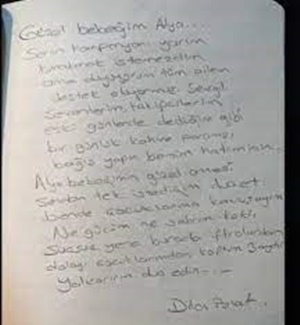 Güzel bebeğim Alya....
Senin kampanyanı yarım
bırakmak istemezdim
ama oluyorum tüm ailen
destek olıyoruz. Sevgili
Sevenlerim, takipçilerim
eski günlerde dediğim gibi
bir günlük kahve paranızı
bağış yapın benim hatırıma.
Alya bebeğimin güzel annesi
Senden tek istediğim dua et
bende çocuklarıma kavuşayım
Ne gücüm ne sabrım kaldı.
Susuz yere burada iftiralardan
dolayı çocuklarımdan koptum
Yalvarırım dua edin....
Dilan Polat.